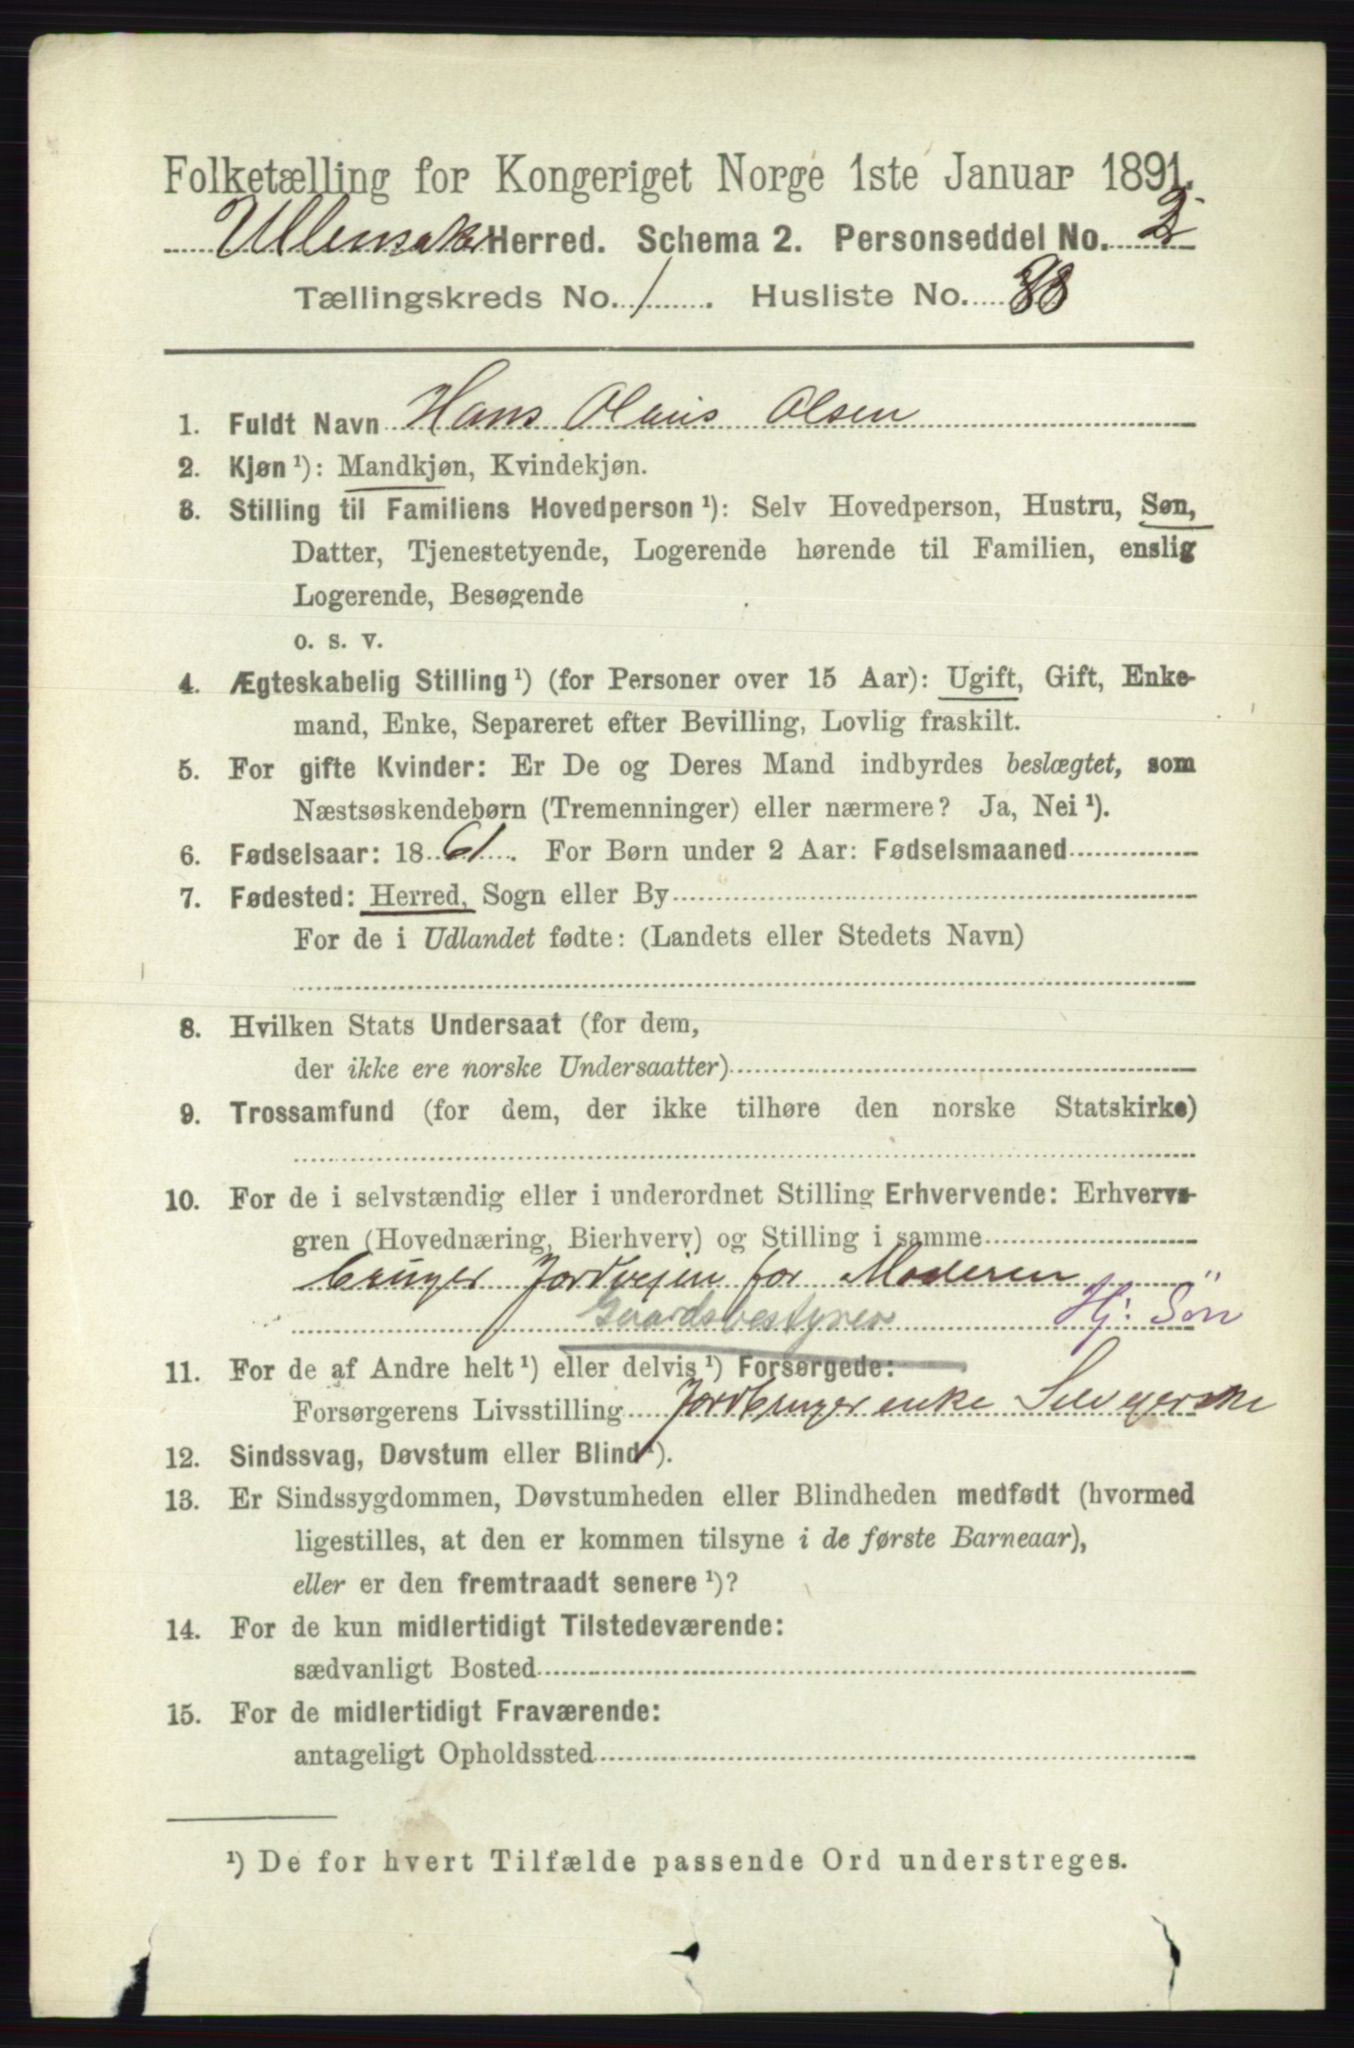 Folketælling for Kongeriget Norge 1ste Januar 1891.
Ullensaker Herred. Schema 2. Personseddel No. 2
Tællingskreds No. 1. Husliste No. 88
1. Fuldt Navn Hans Olaus Olsen
2. Kjøn ¹): Mandkjøn, Kvindekjøn.
3. Stilling til Familiens Hovedperson ¹): Selv Hovedperson, Hustru, Søn,
Datter, Tjenestetyende, Logerende hørende til Familien, enslig
Logerende, Besøgende
o. s. v.
4. Ægteskabelig Stilling ¹) (for Personer over 15 Aar): Ugift, Gift, Enke-
mand, Enke, Separeret efter Bevilling, Lovlig fraskilt.
5. For gifte Kvinder: Er De og Deres Mand indbyrdes beslægtet, som
Næstsøskendebørn (Tremenninger) eller nærmere? Ja, Nei ¹).
6. Fødselsaar: 1861. For Børn under 2 Aar: Fødselsmaaned
7. Fødested: Herred, Sogn eller By
For de i Udlandet fødte: (Landets eller Stedets Navn)
8. Hvilken Stats Undersaat (for dem,
der ikke ere norske Undersaatter)
9. Trossamfund (for dem, der ikke tilhøre den norske Statskirke)
10. For de i selvstændig eller i underordnet Stilling Erhvervende: Erhvervs-
gren (Hovednæring, Bierhverv) og Stilling i samme
bruger Jordvejen for Moderen
Gaardsbestyrer Hj: Søn
11. For de af Andre helt ¹) eller delvis ¹) Forsørgede:
Forsørgerens Livsstilling Jordbruger enke Selvejerske
12. Sindssvag, Døvstum eller Blind ¹).
13. Er Sindssygdommen, Døvstumheden eller Blindheden medfødt (hvormed
ligestilles, at den er kommen tilsyne i de første Barneaar),
eller er den fremtraadt senere ¹)?
14. For de kun midlertidigt Tilstedeværende:
sædvanligt Bosted
15. For de midlertidigt Fraværende:
antageligt Opholdssted
¹) De for hvert Tilfælde passende Ord understreges.